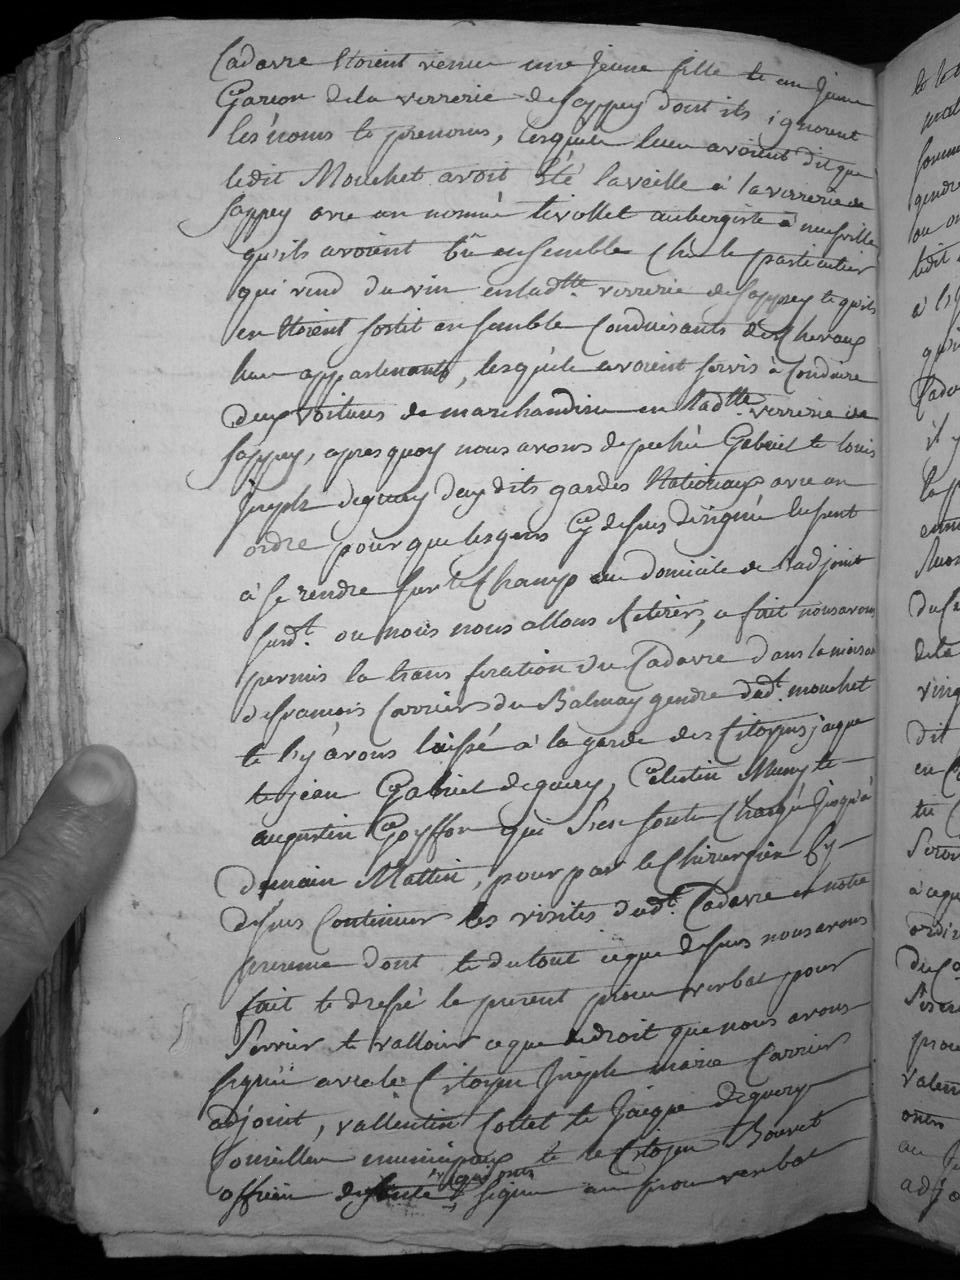 Cadavre Etoient venue une jeune fille et un jeune
Garcon de la verrerie de Sappey dont ils ignorent
les noms et prenoms, lesquels leur avoient dit que
ledit Mouchet avoit été la veille à la verrerie de
Sappey avec un nommé Tivollet aubergiste à neufville
qu'ils avoient bu ensemble Chés le particulier
qui vend du vin en lad.tte verrerie de Sappey et qu'ils
en Etoient sortit ensemble Conduisants des Chevaux
leur appartenants, lesquels avoient servis à Conduire
deux voitures de marchandise en lad.tte verrerie de
Sappey, apres quoy nous avons depeché Gabriel et Louis
Joseph deguery deux dits gardes Nationaux avec un
ordre pour que les gens Cy desus désigné eusent
à se rendre sur le Champ au domicile de l'adjoint
susd.t ou nous nous allons Retirer, a fait nous avons
permis la translation du Cadavre dans la maison
de françois Carrier du Balmay gendre dud.t mouchet
et l'y avons laissé à la garde des Citoyens jaque
et jean Gabriel deguery, Celestin Muny et
augustin Goyffon qui s'en sont Chargé jusqu'à
demain Mattin, pour par le Chirurgien Cy
desus Continuer les visites dud.t Cadavre en notre
presence dont et du tout ceque desus nous avons
fait et dressé le present proces verbal pour
servir et valloir ce que de droit que nous avons
signé avec le Citoyen Joseph marie Carrier
adjoint, vallentin Collet et Jacque deguery
Conseillers municipaux et le Citoyen Bouvet
officier de santé qui ont signé au proces verbal